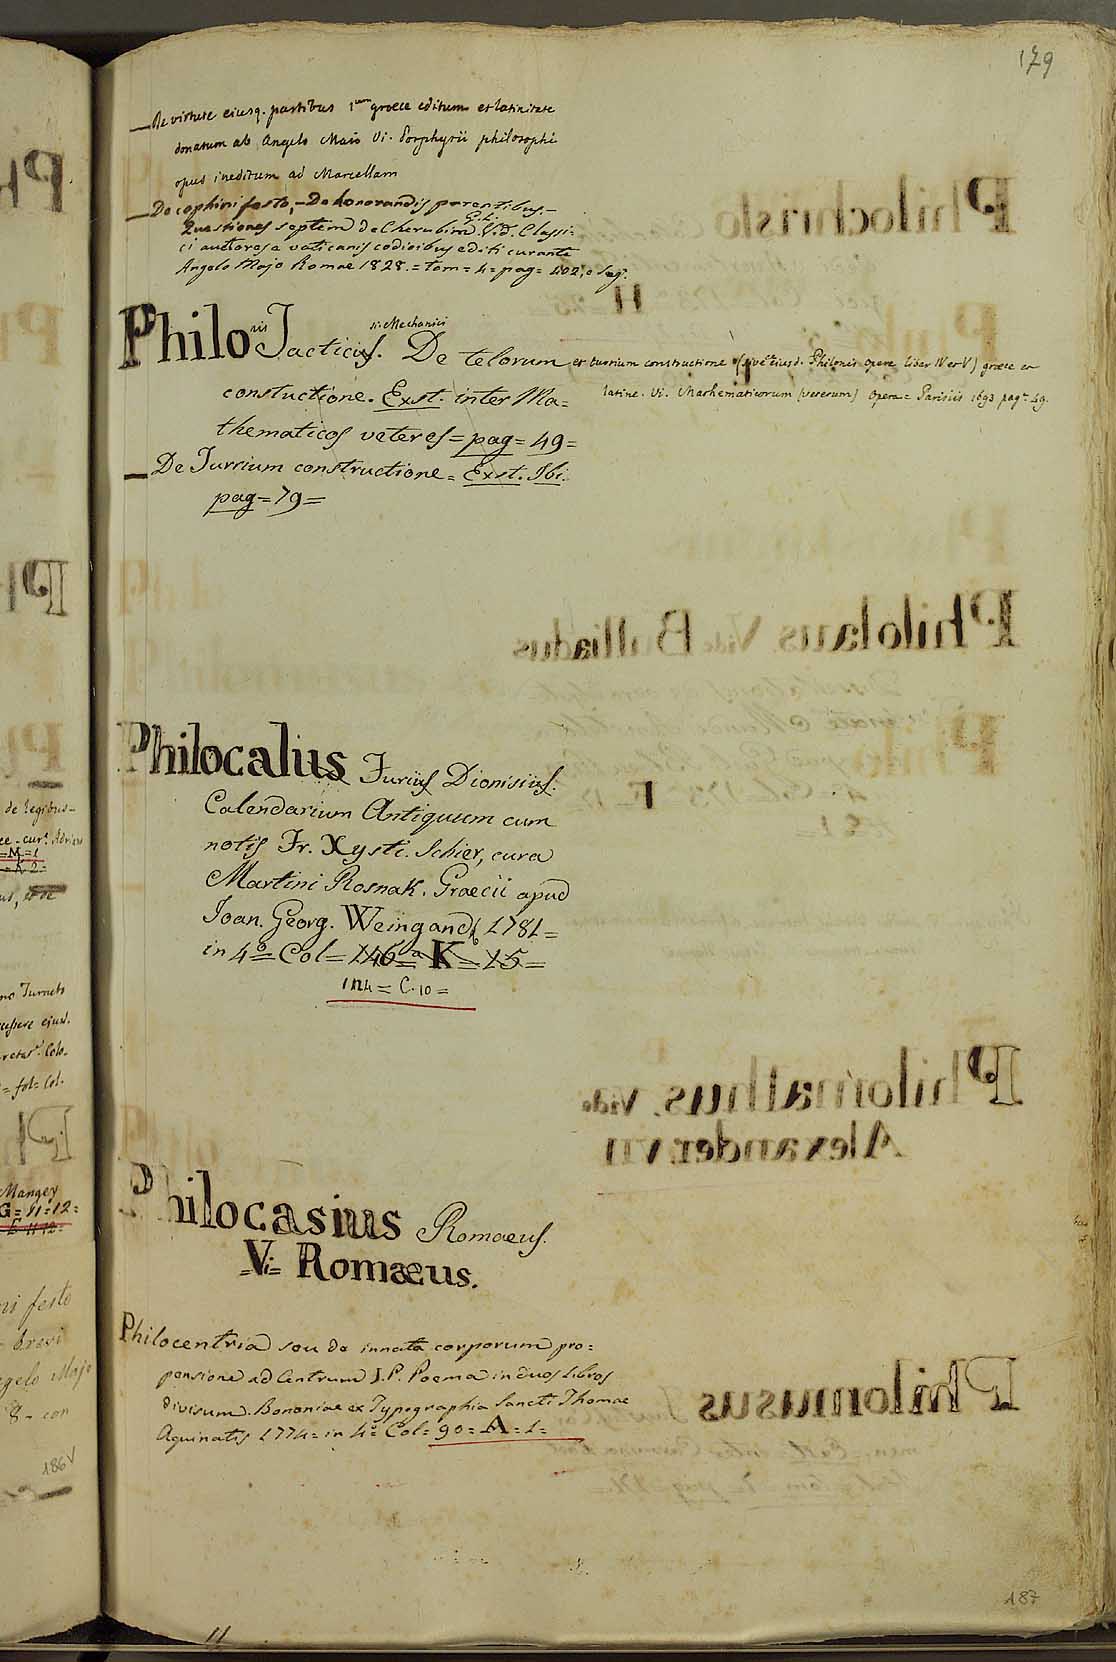 179
— De virtute eiusq. partibus 1um graece editum et latinitate
donatum ab Angelo Maio Vi. Porphyrii philosophi
opus ineditum ad Marcellam
— De cophini festo, — De honorandis parentibus. —
Quaestiones septem de Cherubim &c. Vid. Classi=
ci auctores a vaticanis codicibus editi curante
Angelo Majo Romae 1828. = tom = 4 = pag = 402, e seg.
Philonis Tacticus. si. Mechanici De telorum et turrium constructione (sive eiusd. Philonis opere liber IV et V) graece et
latine. Vi. Mathematicorum (veterum) Opera = Parisiis 1693 pag. 49.
constuctione. Exst. inter Ma=
thematicos veteres = pag = 49 =
— De Turrium constructione = Exst. Ibi.
pag = 79 =
Philocalius Furius Dionisius.
Calendarium Antiquum cum
notis Fr. Xysti. Schier, cura
Martini Rosnak. Graecii apud
Joan. Georg. Weingand 1781 =
in 4° = Col = 146 = K = 15 =
124 = C. 10 =
Philocasius Romaeus.
= Vi = Romæus.
Philocentria seu de innata corporum pro=
pensione ad Centrum J. P. Poema in duos Libros
divisum. Bononiae ex Typographia Sancti Thomae
Aquinatis 1774 = in 4° Col = 90 = A = 1 =
187